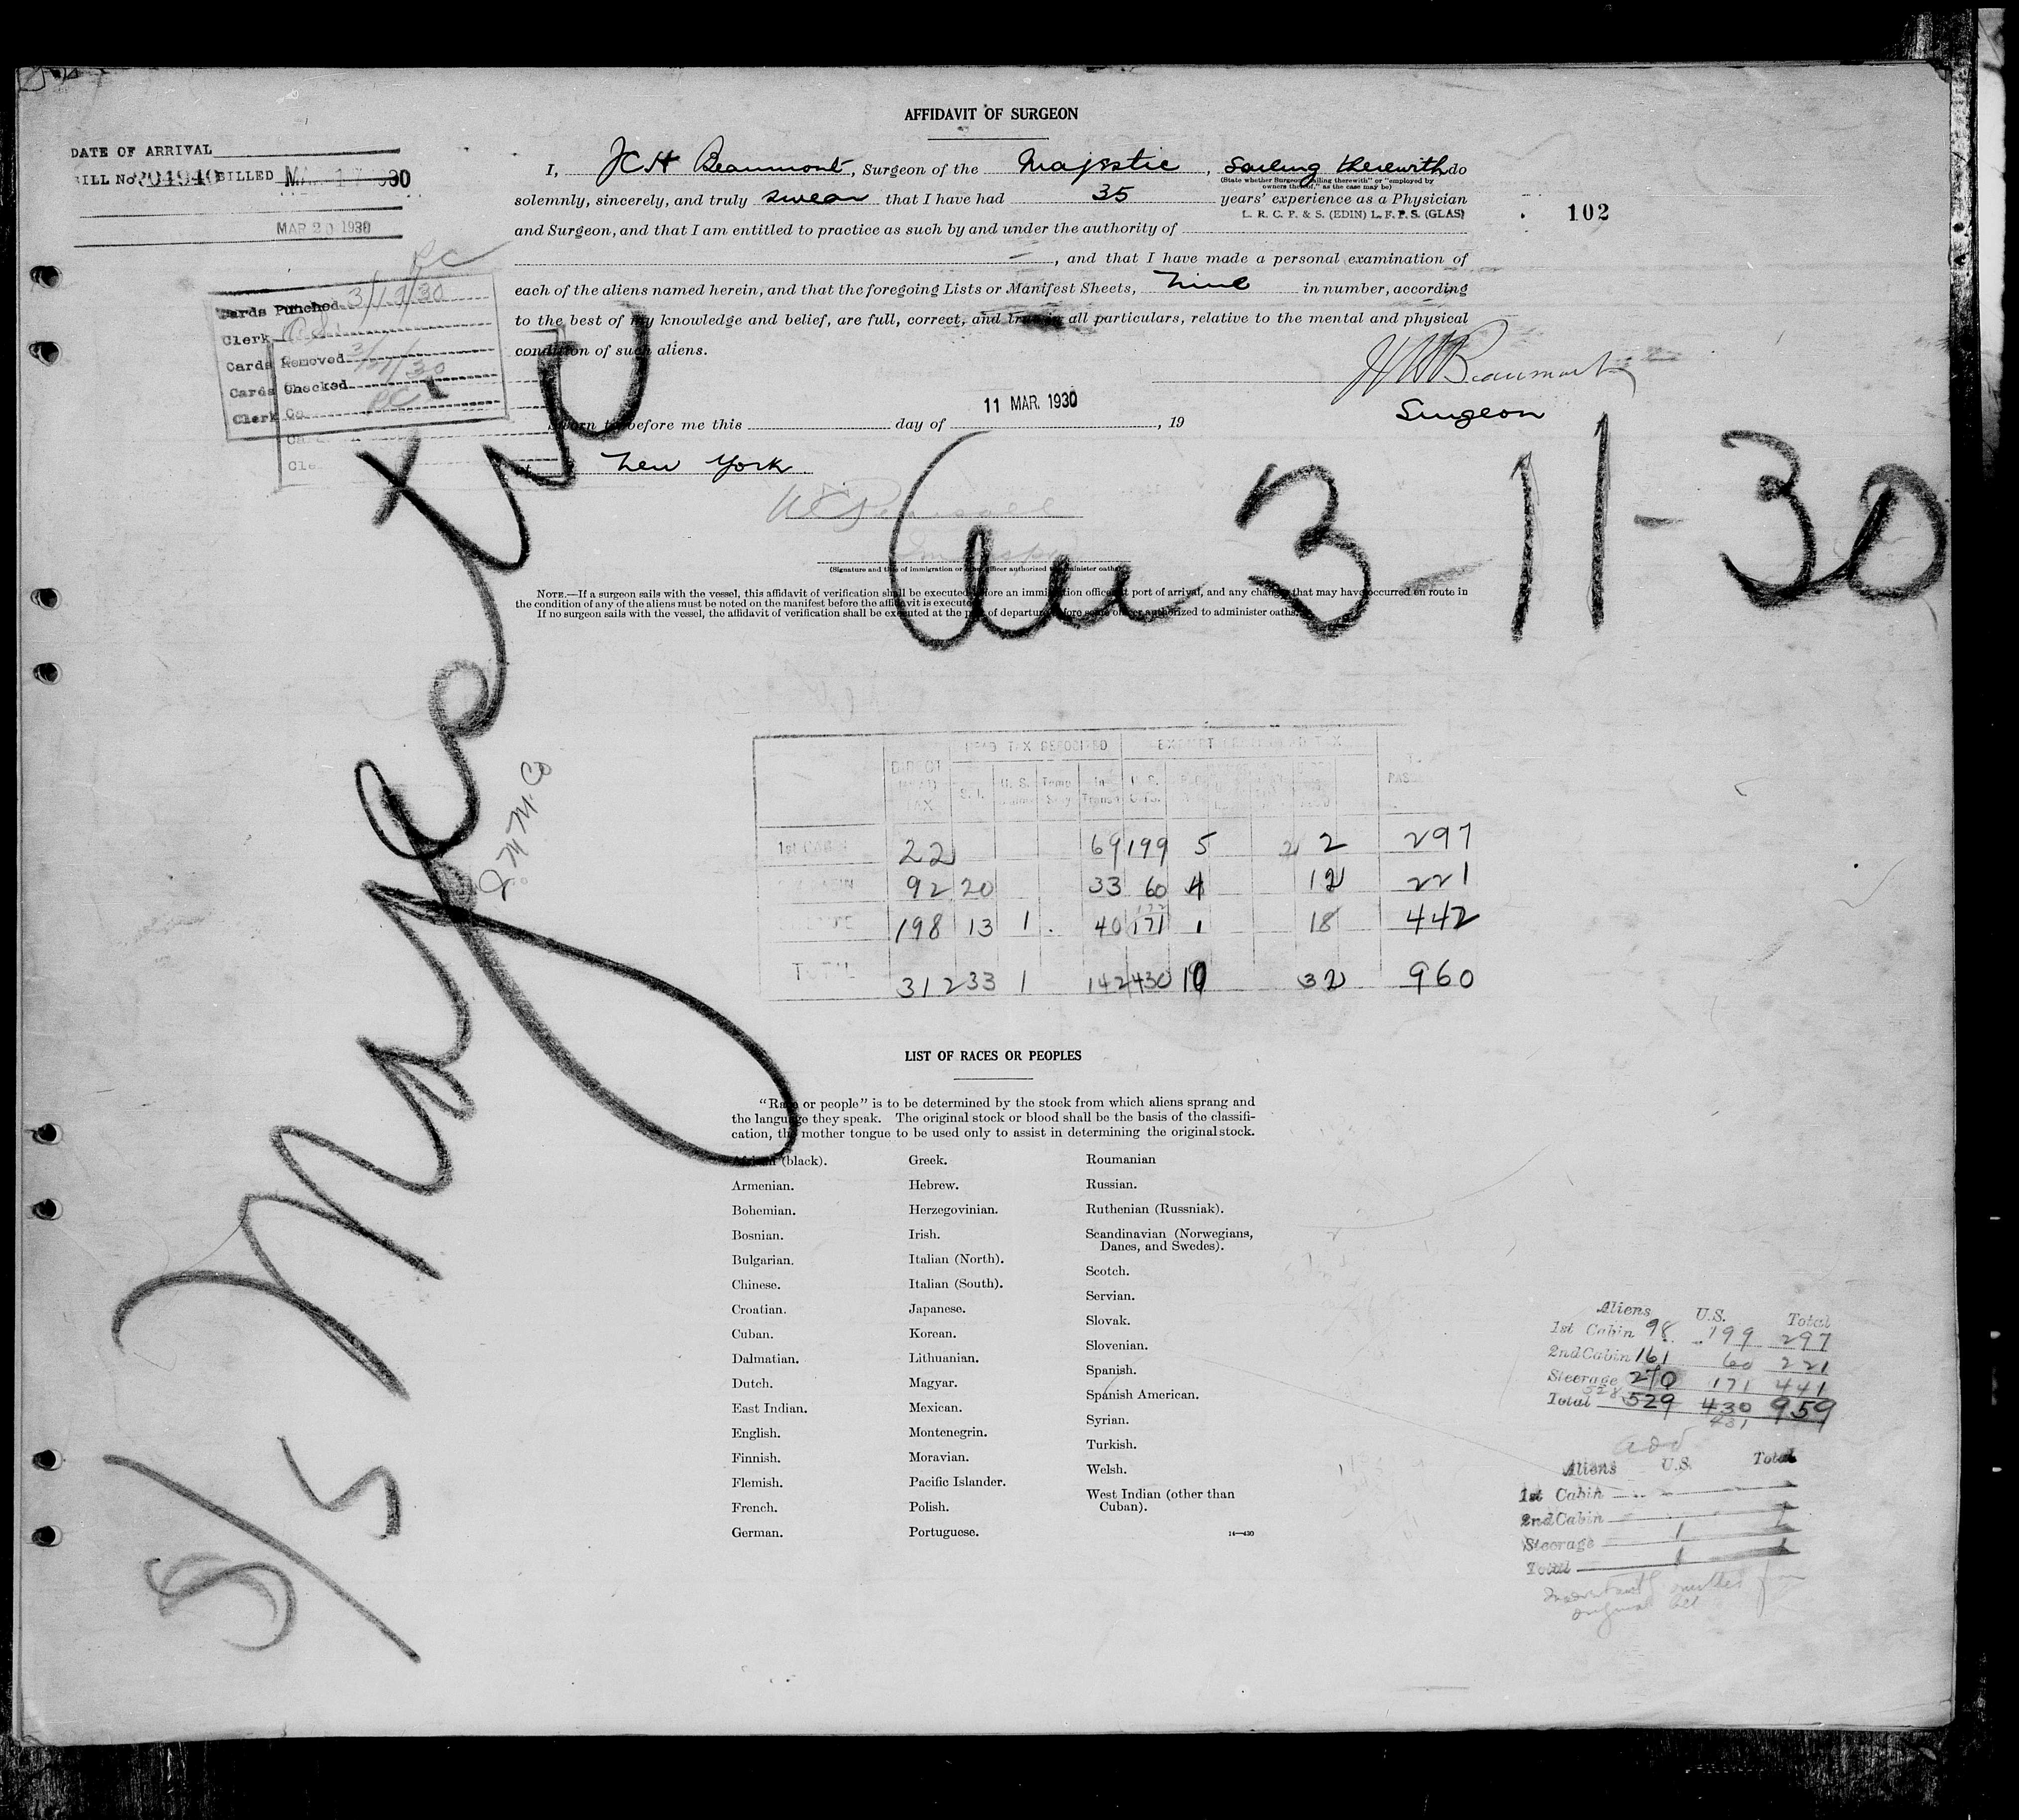 AFFIDAVIT OF SURGEON
DATE OF ARRIVAL
BILL No. 204940 BILLED MAR 17 1930
MAR 20 1930
I, JCH Beaumont, Surgeon of the Majestic, Sailing therewith do
(State whether Surgeon "sailing therewith" or "employed by
owners thereof," as the case may be)
solemnly, sincerely, and truly swear that I have had 35 years' experience as a Physician
L. R. C. P. & S. (EDIN) L. F. P. S. (GLAS)
and Surgeon, and that I am entitled to practice as such by and under the authority of
, and that I have made a personal examination of
each of the aliens named herein, and that the foregoing Lists or Manifest Sheets, nine in number, according
to the best of my knowledge and belief, are full, correct, and true in all particulars, relative to the mental and physical
condition of such aliens.
102
Cards Punched 3/19/30
Clerk
Cards Removed
Cards Checked
Clerk
JCH Beaumont
Surgeon
Sworn to before me this day of 11 MAR. 1930, 19
at New York
(Signature and title of immigration or other officer authorized to administer oaths)
NOTE.—If a surgeon sails with the vessel, this affidavit of verification shall be executed before an immigration officer at port of arrival, and any changes that may have occurred en route in
the condition of any of the aliens must be noted on the manifest before the affidavit is executed.
If no surgeon sails with the vessel, the affidavit of verification shall be executed at the port of departure before some officer authorized to administer oaths.
S/S Majestic
I. M. M. Co
Arr 3-11-30
HEAD TAX DEPOSITED EXEMPT FROM HEAD TAX
DIRECT HEAD TAX S.I. U.S. Temp Stay In Transit U.S. Citz.
1st CABIN 22 69 199 5 2 2 297
2nd CABIN 92 20 33 60 4 12 221
STEERAGE 198 13 1 40 171 1 18 442
TOTAL 312 33 1 142 430 10 32 960
LIST OF RACES OR PEOPLES
"Race or people" is to be determined by the stock from which aliens sprang and
the language they speak. The original stock or blood shall be the basis of the classifi-
cation, the mother tongue to be used only to assist in determining the original stock.
African (black).
Armenian.
Bohemian.
Bosnian.
Bulgarian.
Chinese.
Croatian.
Cuban.
Dalmatian.
Dutch.
East Indian.
English.
Finnish.
Flemish.
French.
German.
Greek.
Hebrew.
Herzegovinian.
Irish.
Italian (North).
Italian (South).
Japanese.
Korean.
Lithuanian.
Magyar.
Mexican.
Montenegrin.
Moravian.
Pacific Islander.
Polish.
Portuguese.
Roumanian
Russian.
Ruthenian (Russniak).
Scandinavian (Norwegians,
Danes, and Swedes).
Scotch.
Servian.
Slovak.
Slovenian.
Spanish.
Spanish American.
Syrian.
Turkish.
Welsh.
West Indian (other than
Cuban).
14—430
Aliens U.S. Total
1st Cabin 98 199 297
2nd Cabin 161 60 221
Steerage 270 171 441
528
Total 529 430 959
431
add
Aliens U.S. Total
1st Cabin
2nd Cabin
Steerage 1 1
Total 1 1
Inadvertently omitted from
original bill